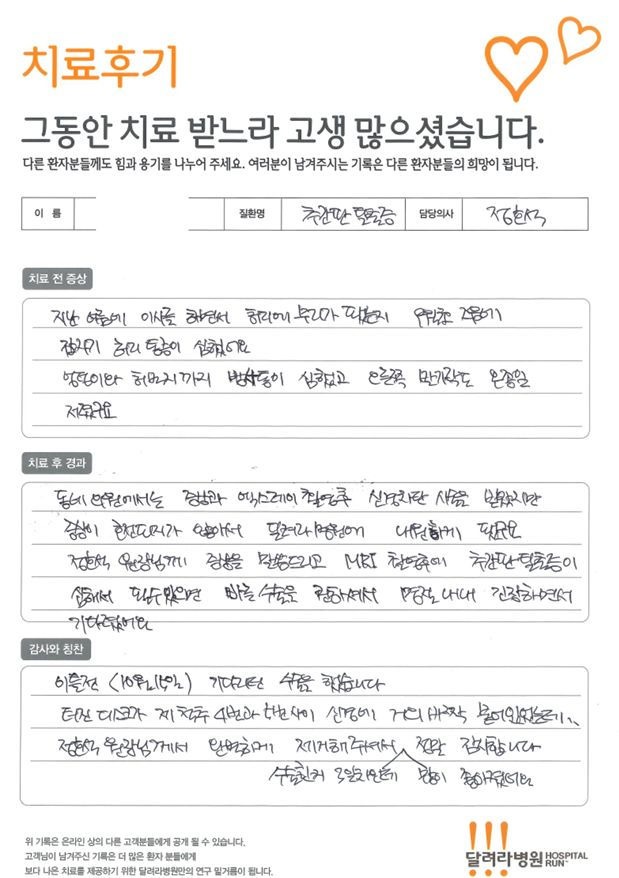 치료후기
그동안 치료 받느라 고생 많으셨습니다.
다른 환자분들께도 힘과 용기를 나누어 주세요. 여러분이 남겨주시는 기록은 다른 환자분들의 희망이 됩니다.
이 름 질환명 추간판 탈출증 담당의사 정한석
치료 전 증상
지난 여름에 이사를 하면서 허리에 무리가 됐는지
갑자기 허리 통증이 심했어요
엉덩이와 허벅지까지 방사통이 심했었고 오른쪽 발가락도 온종일
저렸구요
치료 후 경과
동네 의원에서는 증상과 엑스레이 촬영후 신경차단 시술을 받았지만
증상이 호전되지가 않아서 달려라병원에 내원하게 됐구요
정한석 원장님께 증상을 말씀드리고 MRI 촬영후에 추간판탈출증이
심해서 될수있으면 빠른 수술을 권하셔서 명절 내내 긴장하면서
기다렸어요
감사와 칭찬
이틀전 기다리던 수술을 했습니다
터진 디스크가 제 척추 4번과 5번사이 신경에 거의 바짝 붙어있었는데..
정한석 원장님께서 완벽하게 제거해주셔서 정말 감사합니다
수술한지 3일차인데 많이 좋아졌어요
위 기록은 온라인 상의 다른 고객분들에게 공개 될 수 있습니다.
고객님이 남겨주신 기록은 더 많은 환자 분들에게
보다 나은 치료를 제공하기 위한 달려라병원만의 연구 밑거름이 됩니다.
달려라병원 HOSPITAL RUN